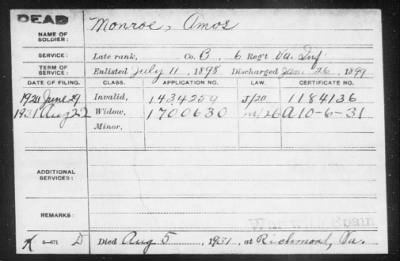 DEAD
NAME OF SOLDIER: Monroe, Amos
SERVICE: Late rank, Co. B, 6 Reg't Va. Inf
TERM OF SERVICE: Enlisted July 11, 1898 Discharged Jan. 26, 1899
DATE OF FILING. CLASS. APPLICATION NO. CERTIFICATE NO.
1920 June 29 Invalid, 1434259 1184136
1931 Aug 22 Widow, 1700630 A 10-6-31
Minor,
ADDITIONAL SERVICES:
REMARKS:
K D Died Aug 5, 1931, at Richmond, Va.